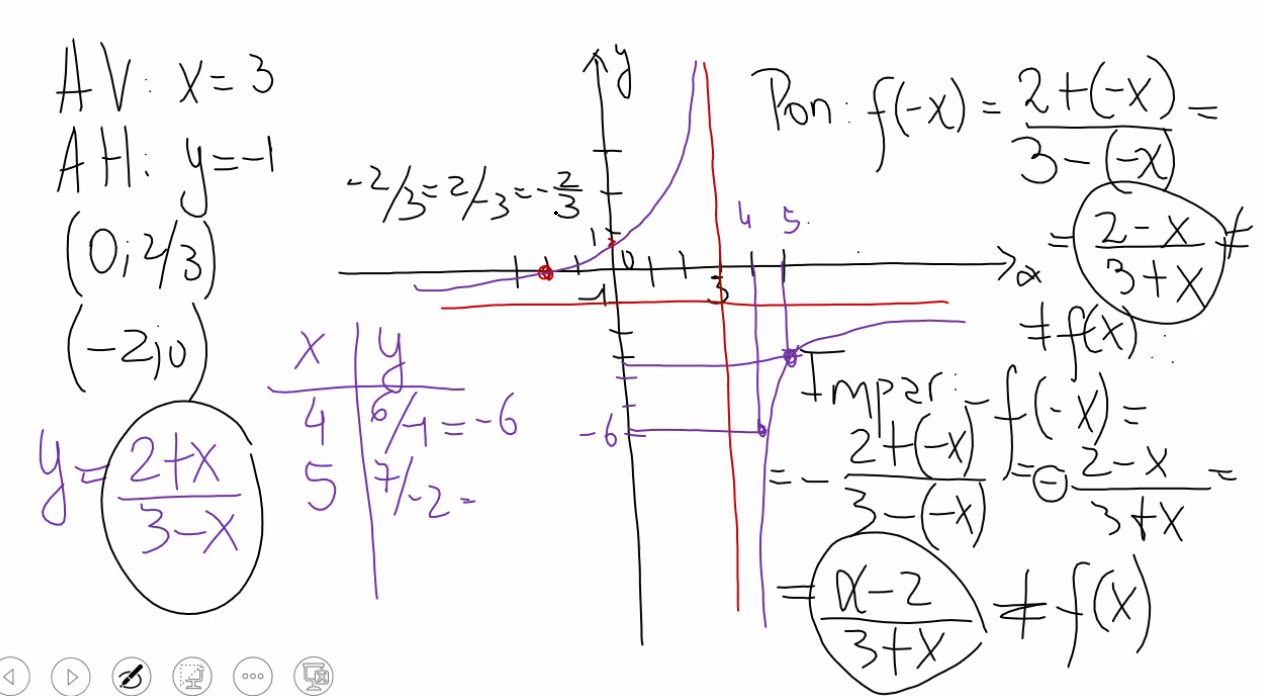 AV: x=3
AH: y=-1
(0; 2/3)
(-2; 0)
y = (2+x)/(3-x)
x | y
4 | 6/-1 = -6
5 | 7/-2 =
-2/3 = 2/-3 = -2/3
y
1
0
-1
3
4 5
x
-6
Pon: f(-x) = (2+(-x))/(3-(-x)) =
= (2-x)/(3+x) ≠
≠ f(x)
Impar: -f(-x) =
= -(2+(-x))/(3-(-x)) = -(2-x)/(3+x) =
= (x-2)/(3+x) ≠ f(x)